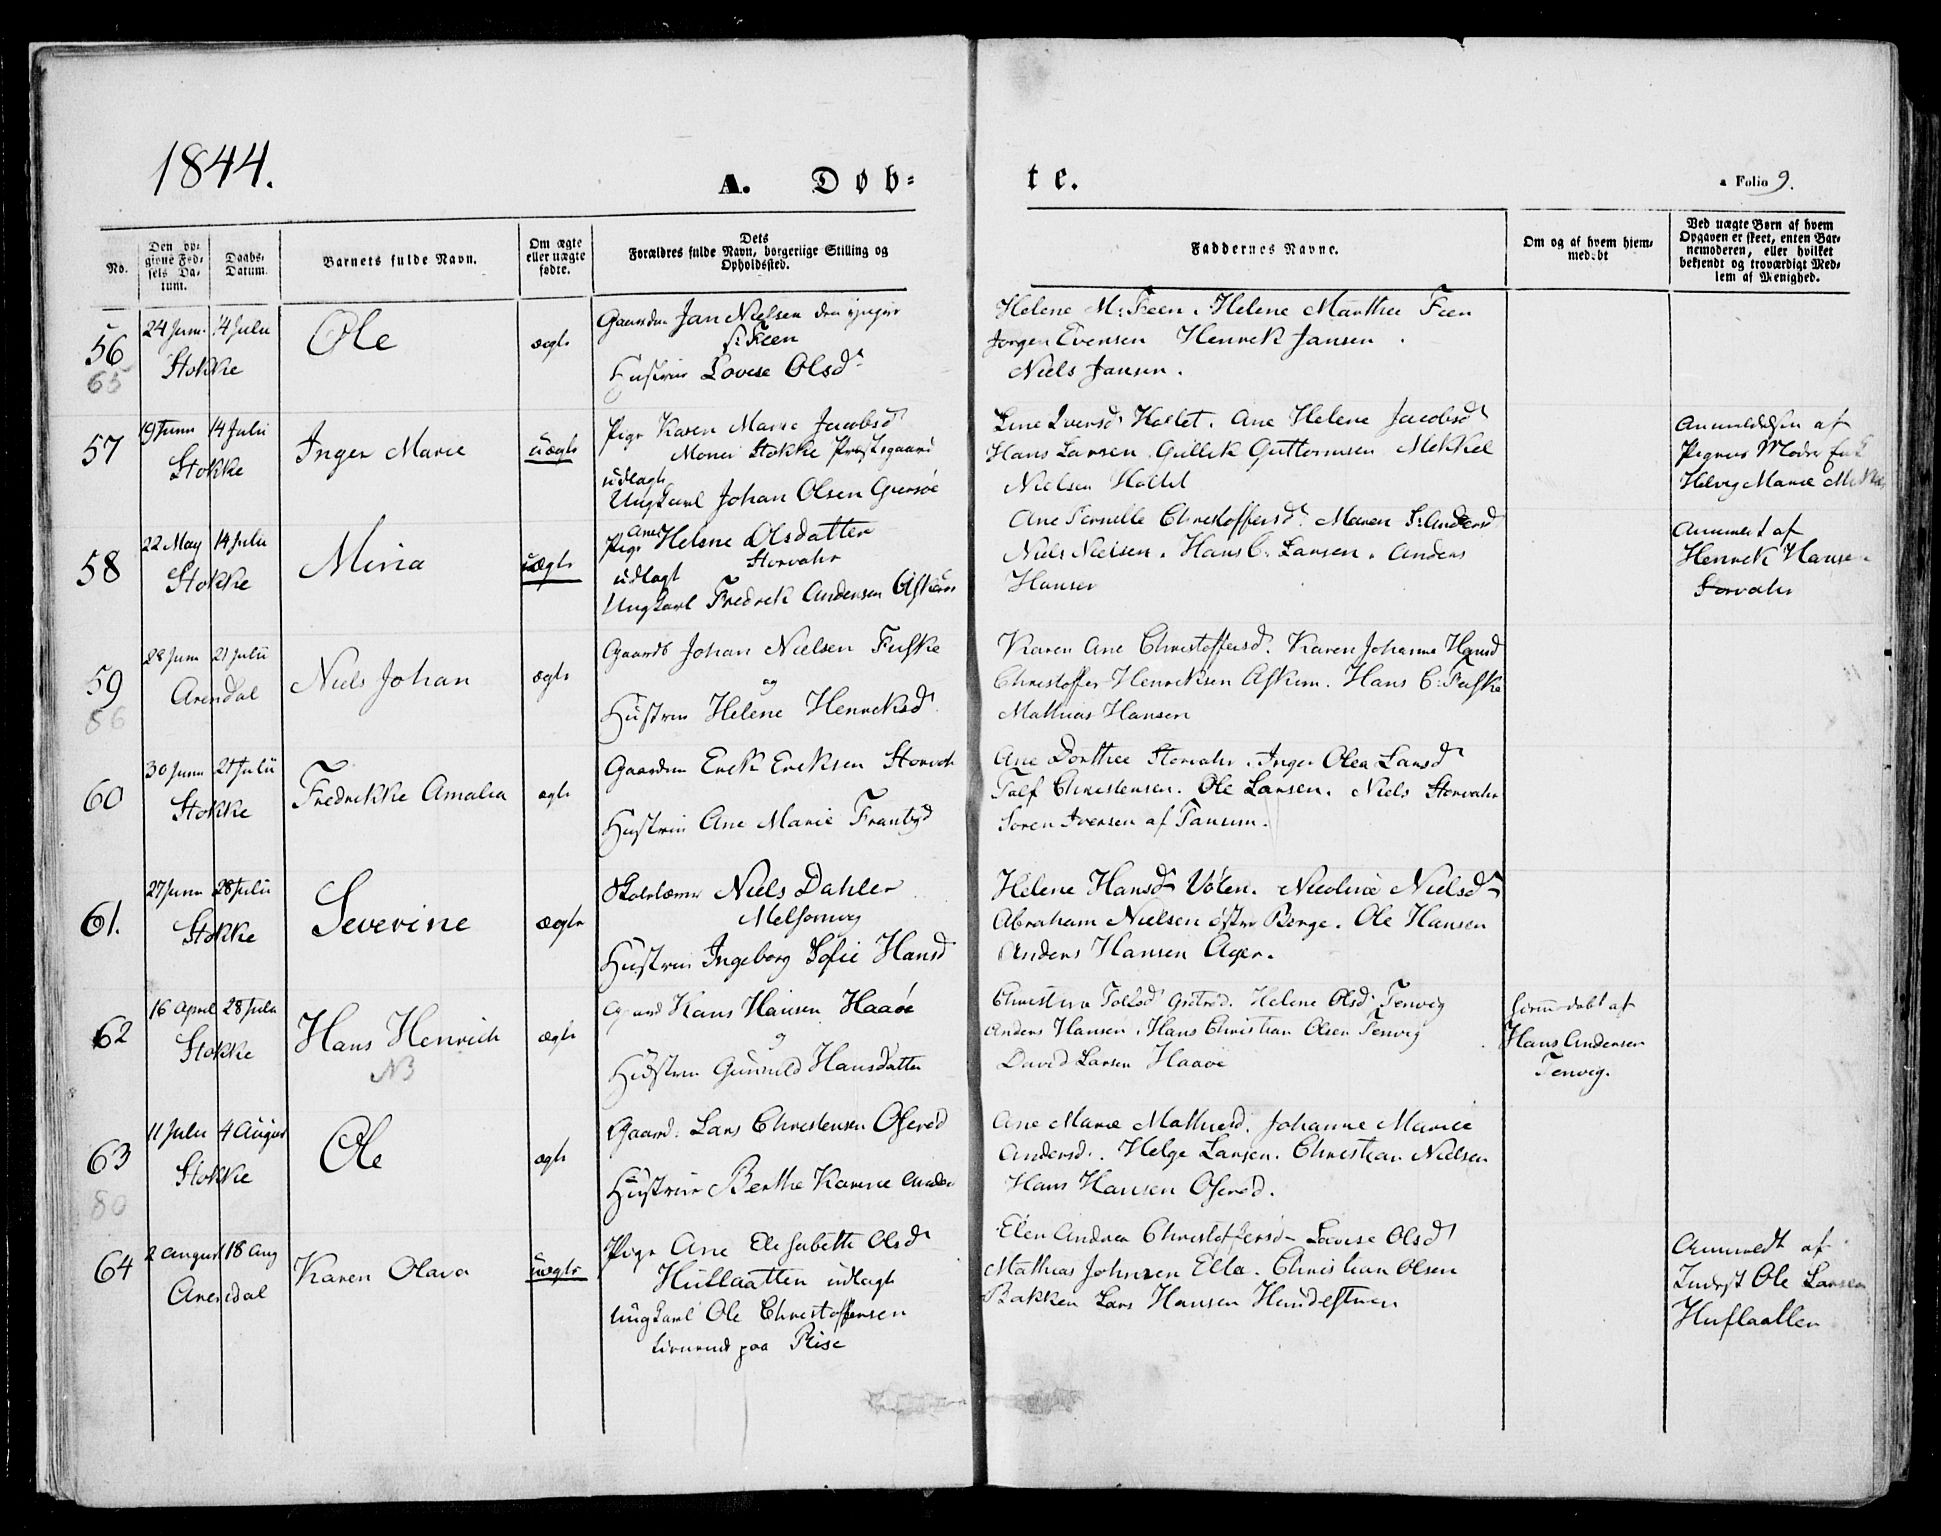 1844.
A. Døb-
te.
a Folio 9.
No.
Den op-
givne Fød-
sels Da-
tum.
Daabs-
Datum.
Barnets fulde Navn.
Om ægte
eller uægte
fødte.
Dets
Forældres fulde Navn, borgerlige Stilling og
Opholdssted.
Faddernes Navne.
Om og af hvem hjem-
medøbt
Ved uægte Børn af hvem
Opgaven er skeet, enten Bar-
nemoderen, eller hvilket
bekjendt og troværdigt Med-
lem af Menighed.
56
65
24 Juni 14 Julii
Stokke
Ole
ægte
Gaardm Jan Nielsen den yngre
Feen
Hustrue Lovise Olsd
Helene M: Feen. Helene Marthee Feen
Jørgen Evensen Henrek Jansen
Niels Jansen.
57
19 Juni 14 Julii
Stokke
Inger Marie
uægte
Pige Karen Marie Jacobsd
Stokke Præstegaard
udlagt
Ungkarl Johan Olsen Giersøe
Line Iversd Holtet. Ane Helene Jacobsd
Hans Larsen. Gullik Guttormsen Mekkel
Nielsen Holtet
Anmeldelsen af
Pigens Moder
Helvig Marie
58
22 May 14 Julii
Stokke
Miria
uægte
Pige Ane Helene Olsdatter
Storvahr
udlagt
Ungkarl Fredrek Andersen
Ane Pernille Christoffersd. Maren S: Andersd
Niels Nielsen. Hans C: Larsen. Anders
Hansen
Anmeldt af
Henrek Hansen
Storvahr
59
86
28 Juni 21 Julii
Arendal
Niels Johan
ægte
Gaardb Johan Nielsen Fuske
og
Hustrue Helene Henreksd
Karen Ane Christoffersd. Karen Johanne Hansd
Christoffer Henriksen Askim. Hans C: Fuske
Mathias Hansen
60
30 Juni 21 Julii
Stokke
Fredrekke Amalia
ægte
Gaardm Erek Ereksen Storvahr
Hustrue Ane Marie Frantzd
Ane Dorthee Storvahr. Inger Olea Larsd
Tolf Christensen. Ole Larsen. Niels Storvahr
Søren Iversen af Tansum.
61.
27 Juni 28 Julii
Stokke
Severine
ægte
Skolelærer Niels Dahler
Melsomvig
Hustrue Ingeborg Sofie Hansd
Helene Hansd Volen. Nicoline Nielsd
Abraham Nielsen østre Berge. Ole Hansen
Anders Hansen Ager.
62
16 April 28 Julii
Stokke
Hans Henrich
NB
ægte
Gaard Hans Hansen Haaøe
og
Hustrue Gunnild Hansdatter
Christine Tollsd Gretrod. Helene Olsd Tenvig
Anders Hansen. Hans Christian Olsen Tenvig
David Larsen Haaøe
hiemmedøbt af
Hans Andersen
Tenvig.
63
80
11 Julii 4 August
Stokke
Ole
ægte
Gaard: Lars Christensen Oserød
Hustrue Berthe Karene Anders
Ane Marie Mathisd. Johanne Mariee
Andersd. Helge Larsen. Christian Nielsen
Hans Hansen Oserød.
64
2 August 18 Aug
Arendal
Karen Olava
uægte
Pige Ane Elisabeth Olsd
Huflaatten udlagt
Ungkarl Ole Christoffersen
tienende paa Rise
Elen Andrea Christoffersd Lovise Olsd
Mathias Johnsen Ella. Christian Olsen
Bakken Lars Hansen Hundestuen
Anmeldt af
Inderst Ole Larsen
Huflaatten